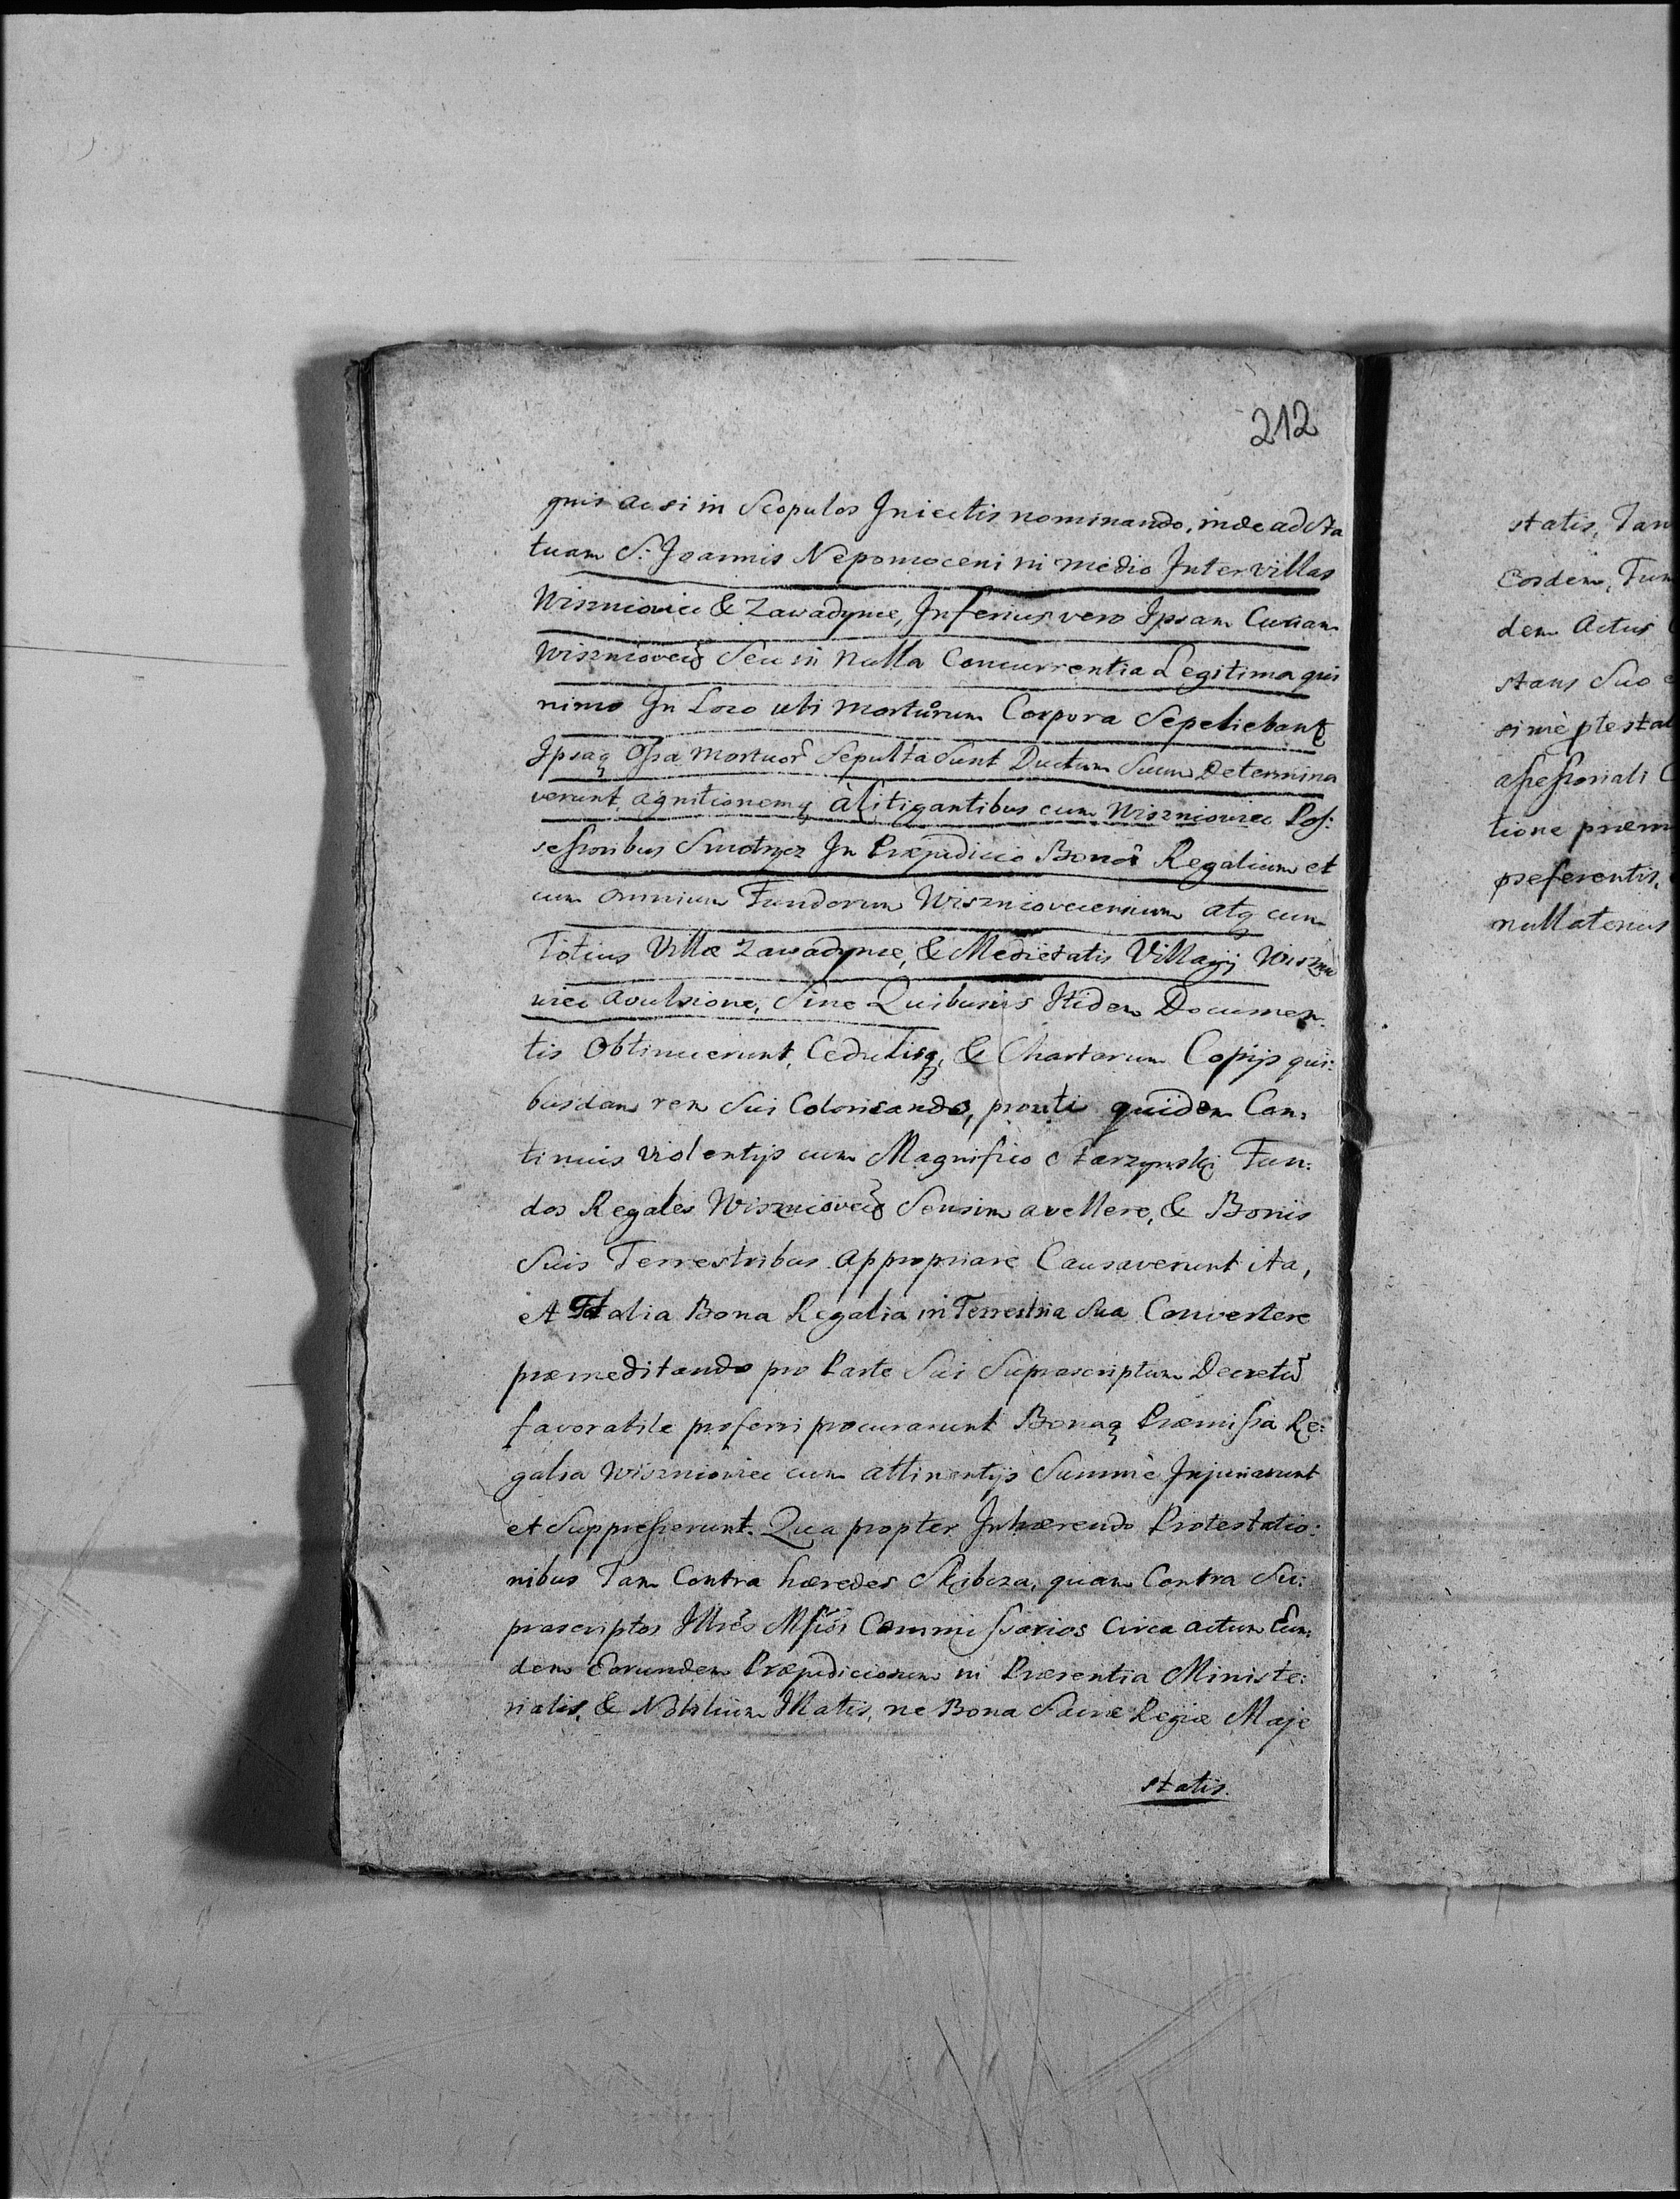 212
gnis ac si in Scopulos Iniectis nominando, inde ad Sta
tuam S: Joannis Nepomoceni in medio Inter villas
Wiszniowiec & Zawadynce, Inferius vero Ipsam Curiam
Wiszniovec Seu in Nulla Concurrentia Legitima qui
nimo In Loco ubi mortuorum Corpora Sepeliebant
Ipsaq Ossa mortuor Sepulta Sunt Ductum Suum Determina
verunt, agnitionemq à litigantibus cum Wiszniowiec Pos:
sessoribus Smotrycz In Præjudicio Bonor Regalium et
cum omnium Fundorum Wiszniovecensium atq cum
Totius Villæ Zawadynce, & Medietatis Villagij Wisznio
wiec avulsione, Sine Quibusvis Itidem Documen:
tis Obtinuerunt, Cedulisq, & Chartarum Copijs qui:
busdam rem Sui Colorisando, prouti quidem Con:
tinuis violentijs cum Magnifico Starzynski Fun:
dos Regales Wiszniovec Sensim avellere, & Bonis
Suis Terrestribus appropriare Causaverunt ita,
et talia Bona Regalia in Terrestria Sua Convertere
præmeditando pro Parte Sui Suprascriptum Decretu
favorabile proferri procurarunt Bonaq Præmissa Re:
galia Wiszniowiec cum attinentijs Summè Injuriarunt
et Suppresserunt. Qua propter Inhærendo Protestatio:
nibus Tam Contra hæredes Skibza, quam Contra Su:
prascriptos Illres Mficos Commissarios Circa actum Eun:
dem Eorundem Præjudiciosum in Præsentia Ministe:
rialis, & Nobilium Illatis, ne Bona Sacræ Regiæ Maje
statis.
statis, Tam
Eosdem, Fun
dem Actus
stans Suo
simè ptestat
assessoriali
tione præm
proferentis,
nullatenus